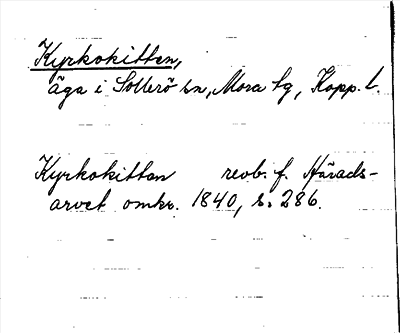 Kyrkokitten,
äga i Sollerö sn, Mora tg, Kopp. l.
Kyrkokittan reob. f. Härads-
arvet omkr. 1840, s. 286.